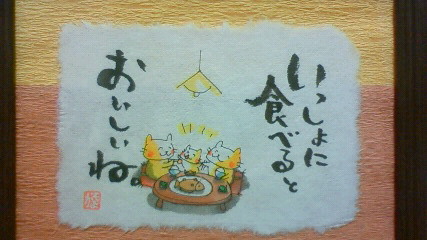 いっしょに
食べると
おいしいね。